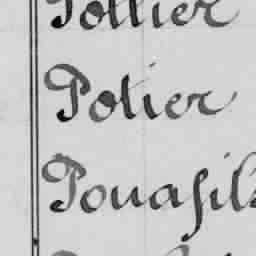 Pottier
Potier
Pouasil